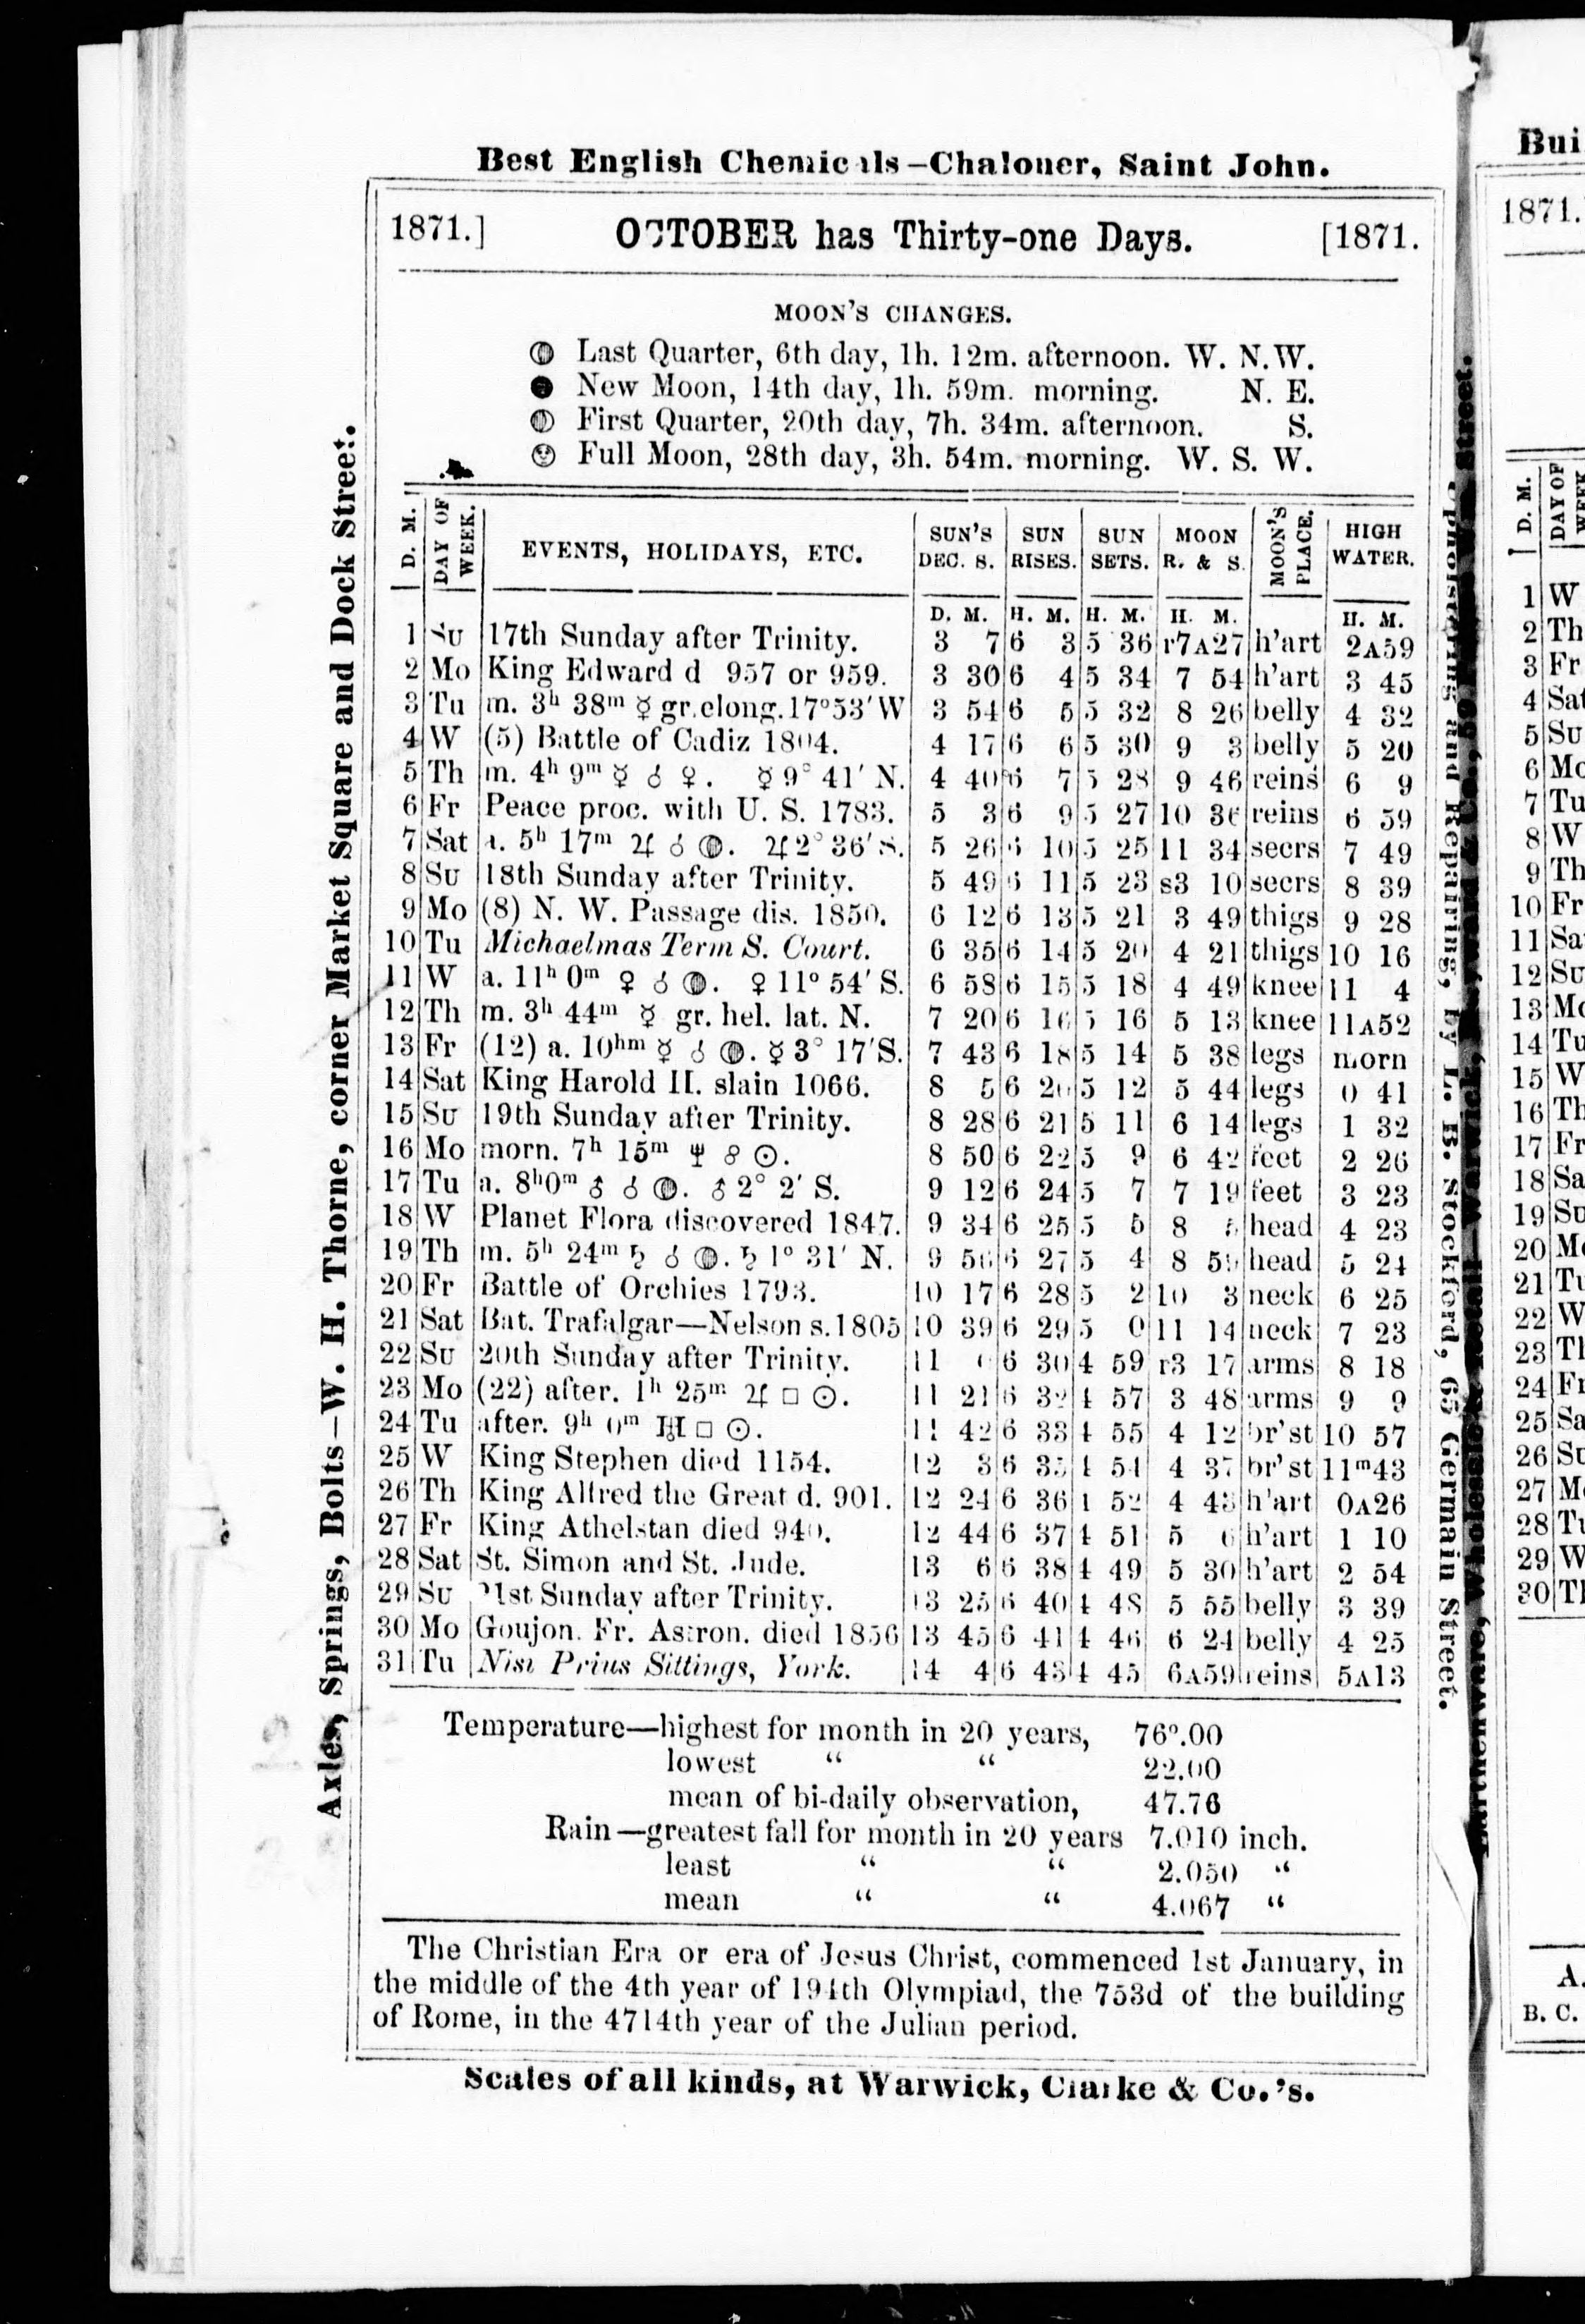 Best English Chemicals—Chaloner, Saint John.
1871.] OCTOBER has Thirty-one Days. [1871.
MOON'S CHANGES.
Last Quarter, 6th day, 1h. 12m. afternoon. W. N.W.
New Moon, 14th day, 1h. 59m. morning. N. E.
First Quarter, 20th day, 7h. 34m. afternoon. S.
Full Moon, 28th day, 3h. 54m. morning. W. S. W.
D. M. DAY OF WEEK. EVENTS, HOLIDAYS, ETC. SUN'S DEC. S. SUN RISES. SUN SETS. MOON R. & S. MOON'S PLACE. HIGH WATER.
D. M. H. M. H. M. H. M. H. M.
1 Su 17th Sunday after Trinity. 3 7 6 3 5 36 r7A27 h'art 2A59
2 Mo King Edward d 957 or 959. 3 30 6 4 5 34 7 54 h'art 3 45
3 Tu m. 3h 38m ☿ gr.elong.17°53'W 3 54 6 5 5 32 8 26 belly 4 32
4 W (5) Battle of Cadiz 1804. 4 17 6 6 5 30 9 3 belly 5 20
5 Th m. 4h 9m ☿ ☌ ♀. ☿ 9° 41' N. 4 40 6 7 5 28 9 46 reins 6 9
6 Fr Peace proc. with U. S. 1783. 5 3 6 9 5 27 10 36 reins 6 59
7 Sat a. 5h 17m ♃ ☌ ☾. ♃ 2° 36' S. 5 26 6 10 5 25 11 34 secrs 7 49
8 Su 18th Sunday after Trinity. 5 49 6 11 5 23 s3 10 secrs 8 39
9 Mo (8) N. W. Passage dis. 1850. 6 12 6 13 5 21 3 49 thigs 9 28
10 Tu Michaelmas Term S. Court. 6 35 6 14 5 20 4 21 thigs 10 16
11 W a. 11h 0m ♀ ☌ ☾. ♀ 11° 54' S. 6 58 6 15 5 18 4 49 knee 11 4
12 Th m. 3h 44m ☿ gr. hel. lat. N. 7 20 6 16 5 16 5 13 knee 11A52
13 Fr (12) a. 10hm ☿ ☌ ☾. ☿ 3° 17'S. 7 43 6 18 5 14 5 38 legs morn
14 Sat King Harold II. slain 1066. 8 5 6 20 5 12 5 44 legs 0 41
15 Su 19th Sunday after Trinity. 8 28 6 21 5 11 6 14 legs 1 32
16 Mo morn. 7h 15m ♆ ☍ ☉. 8 50 6 22 5 9 6 42 feet 2 26
17 Tu a. 8h0m ♂ ☌ ☾. ♂ 2° 2' S. 9 12 6 24 5 7 7 19 feet 3 23
18 W Planet Flora discovered 1847. 9 34 6 25 5 5 8 head 4 23
19 Th m. 5h 24m ♄ ☌ ☾. ♄ 1° 31' N. 9 56 6 27 5 4 8 59 head 5 24
20 Fr Battle of Orchies 1793. 10 17 6 28 5 2 10 3 neck 6 25
21 Sat Bat. Trafalgar—Nelson s.1805 10 39 6 29 5 0 11 14 neck 7 23
22 Su 20th Sunday after Trinity. 11 6 30 4 59 r3 17 arms 8 18
23 Mo (22) after. 1h 25m ♃ □ ☉. 11 21 6 32 4 57 3 48 arms 9 9
24 Tu after. 9h 0m ♅ □ ☉. 11 42 6 33 4 55 4 12 br'st 10 57
25 W King Stephen died 1154. 12 3 6 35 4 54 4 37 br'st 11m43
26 Th King Alfred the Great d. 901. 12 24 6 36 4 52 4 43 h'art 0A26
27 Fr King Athelstan died 940. 12 44 6 37 4 51 5 6 h'art 1 10
28 Sat St. Simon and St. Jude. 13 6 6 38 4 49 5 30 h'art 2 54
29 Su 21st Sunday after Trinity. 13 25 6 40 4 48 5 55 belly 3 39
30 Mo Goujon. Fr. Astron. died 1856 13 45 6 41 4 46 6 24 belly 4 25
31 Tu Nisi Prius Sittings, York. 14 4 6 43 4 45 6A59 reins 5A13
Temperature—highest for month in 20 years, 76°.00
lowest “ “ 22.00
mean of bi-daily observation, 47.76
Rain—greatest fall for month in 20 years 7.010 inch.
least “ “ 2.050 “
mean “ “ 4.067 “
The Christian Era or era of Jesus Christ, commenced 1st January, in
the middle of the 4th year of 194th Olympiad, the 753d of the building
of Rome, in the 4714th year of the Julian period.
Scales of all kinds, at Warwick, Clarke & Co.'s.
Axles, Springs, Bolts—W. H. Thorne, corner Market Square and Dock Street.
Upholstering and Repairing, by L. B. Stockford, 65 Germain Street.
Bui
1871.
D. M. DAY OF WEEK
1 W
2 Th
3 Fr
4 Sat
5 Su
6 Mo
7 Tu
8 W
9 Th
10 Fr
11 Sa
12 Su
13 Mo
14 Tu
15 W
16 Th
17 Fr
18 Sa
19 Su
20 Mo
21 Tu
22 W
23 Th
24 Fr
25 Sa
26 Su
27 Mo
28 Tu
29 W
30 Th
A.
B. C.